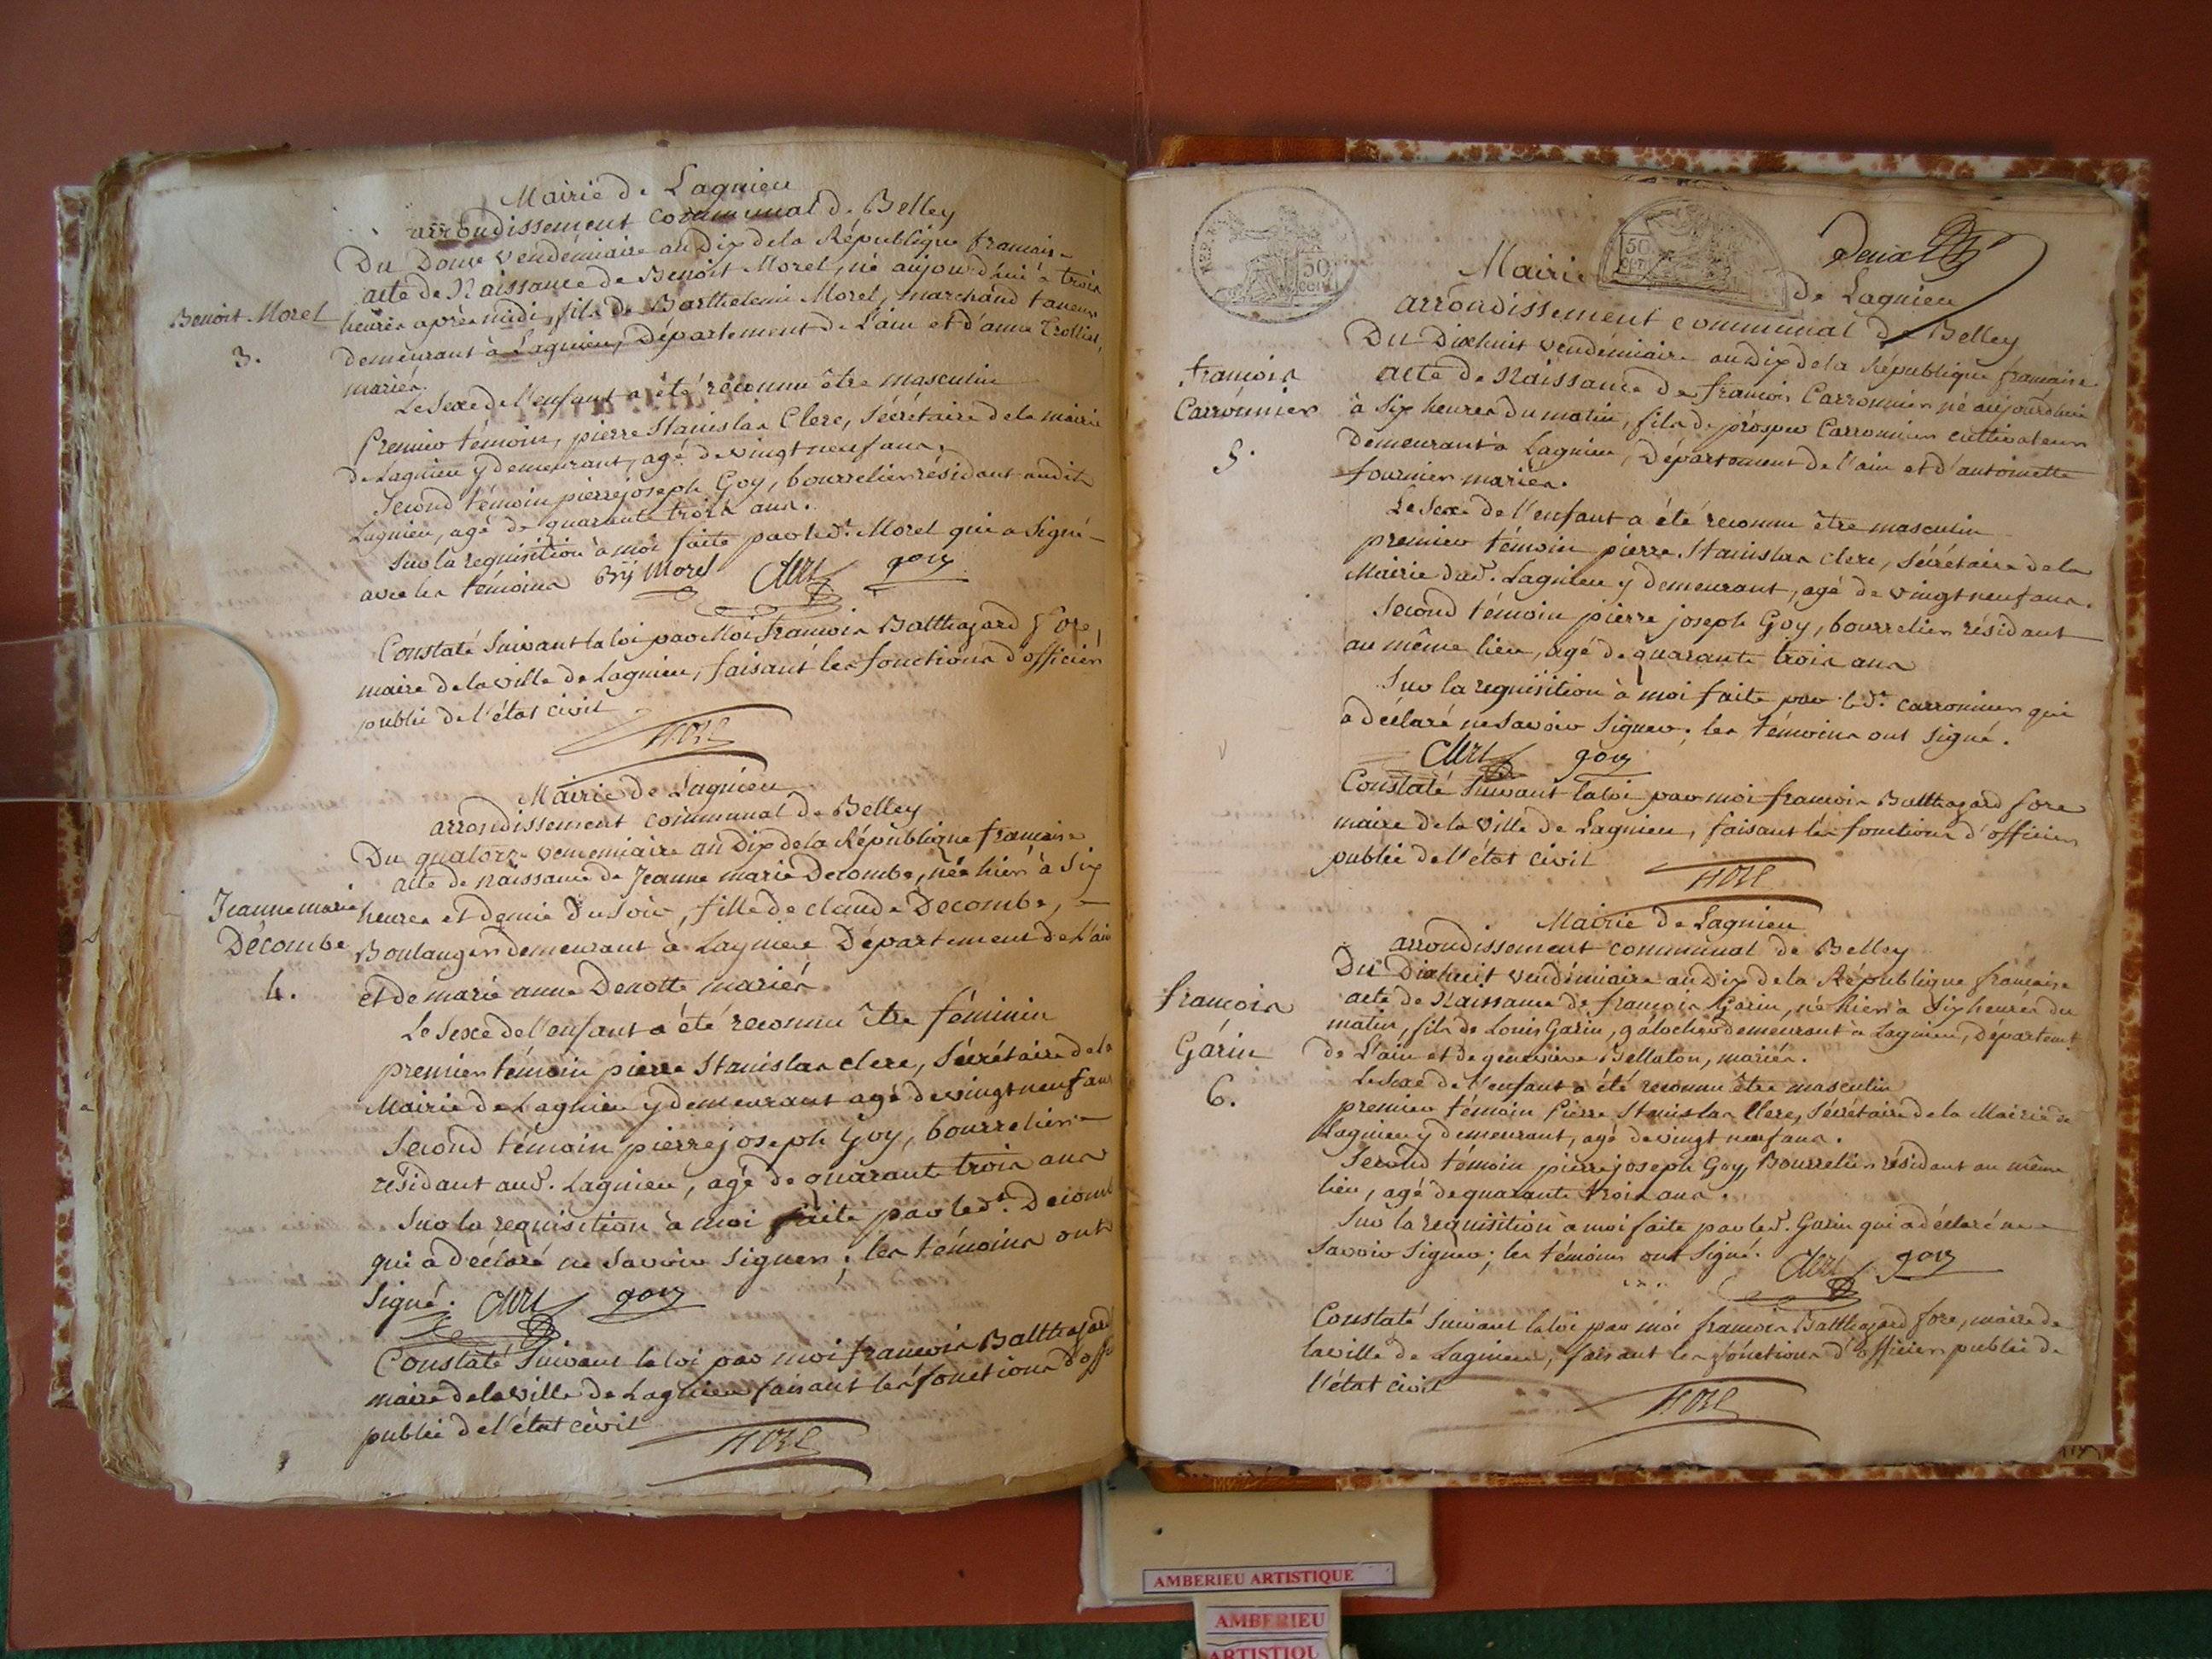 Mairie de Lagnieu
arrondissement communal de Belley
Du Douze vendémiaire an dix de la République francaise
acte de Naissance de Benoit Morel, né aujourd'hui à trois
Benoit Morel
3.
heures après midi, fils de Barthelemi Morel, marchand taneur
demeurant à Lagnieu, Département de L'ain et d'anne Trolliet,
mariés.
Le Sexe de l'enfant a été reconnu être masculin
Premier témoin, pierre Stanislas Clerc, Sécrétaire de la mairie
de Lagnieu y demeurant, agé de vingt neuf ans.
Second témoin pierre joseph Goy, bourrelier résidant audit
Lagnieu, agé de quarante trois ans.
Sur la requisition à moi faite par led.t Morel qui a Signé
avec les témoins Bmy Morel Clerc goy
Constaté Suivant la loi par Moi francois Balthazard fore,
maire de la ville de Lagnieu, faisant les fonctions d'officier
public de l'état civil
fore
Mairie de Lagnieu
arrondissement communal de Belley
Du quatorze vendemiaire an Dix de la République francaise
acte de Naissance de Jeanne marie Decombe, née hier à Six
Jeanne marie
Décombe
4.
heures et demie du Soir, fille de claude Decombe,
Boulanger demeurant à Lagnieu Département de L'ain
et de marie anne Denotte mariés
Le Sexe de l'enfant a été reconnu être féminin
premier témoin pierre Stanislas clerc, Sécrétaire de la
Mairie de Lagnieu y demeurant agé de vingt neuf ans
Second témoin pierre joseph Goy, bourrelier
résidant aud. Lagnieu, agé de quarante trois ans
Sur la requisition à moi faite par led.t Decombe
qui a déclaré ne Savoir Signer; les témoins ont
Signé. Clerc goy
Constaté Suivant la loi par moi francois Balthazard
maire de la ville de Lagnieu faisant les fonctions d'off
public de l'état civil
fore
REP. FRA
50
CENT
50
Deux
Mairie de Lagnieu
arrondissement communal de Belley
Du Dixhuit vendémiaire an Dix de la République francaise
francois
Carronnier
5.
acte de Naissance de francois Carronnier né aujourd'hui
à Six heures du matin, fils de prosper Carronnier cultivateur
demeurant à Lagnieu, Département de l'ain et d'antoinette
fournier mariés.
Le Sexe de l'enfant a été reconnu être masculin
premier témoin pierre Stanislas clerc, Sécrétaire de la
Mairie dud. Lagnieu y demeurant, agé de vingt neuf ans.
Second témoin pierre joseph Goy, bourrelier résidant
au même lieu, agé de quarante trois ans
Sur la requisition à moi faite par led.t carronnier qui
a déclaré ne Savoir Signer; les témoins ont Signé.
Clerc goy
Constaté Suivant la loi par moi francois Balthazard fore
maire de la ville de Lagnieu, faisant les fonctions d'officier
public de l'état civil
fore
Mairie de Lagnieu
arrondissement communal de Belley
Du Dixhuit vendémiaire an Dix de la République francaise
francois
Garin
6.
acte de Naissance de francois Garin, né hier à Six heures du
matin, fils de Louis Garin, galochier demeurant à Lagnieu, Départemt
de L'ain et de genevieve Bellaton, mariés.
Le Sexe de l'enfant a été reconnu être masculin
premier témoin Pierre Stanislas Clerc, Sécrétaire de la Mairie de
Lagnieu y demeurant, agé de vingt neuf ans.
Second témoin pierre joseph Goy, Bourrelier résidant au même
lieu, agé de quarante trois ans.
Sur la requisition à moi faite par led.t Garin qui a déclaré ne
Savoir Signer; les témoins ont Signé. Clerc goy
Constaté Suivant la loi par moi francois Balthazard fore, maire de
la ville de Lagnieu, faisant les fonctions d'officier public de
l'état civil
fore
AMBERIEU ARTISTIQUE
AMBERIEU
ARTISTIQU